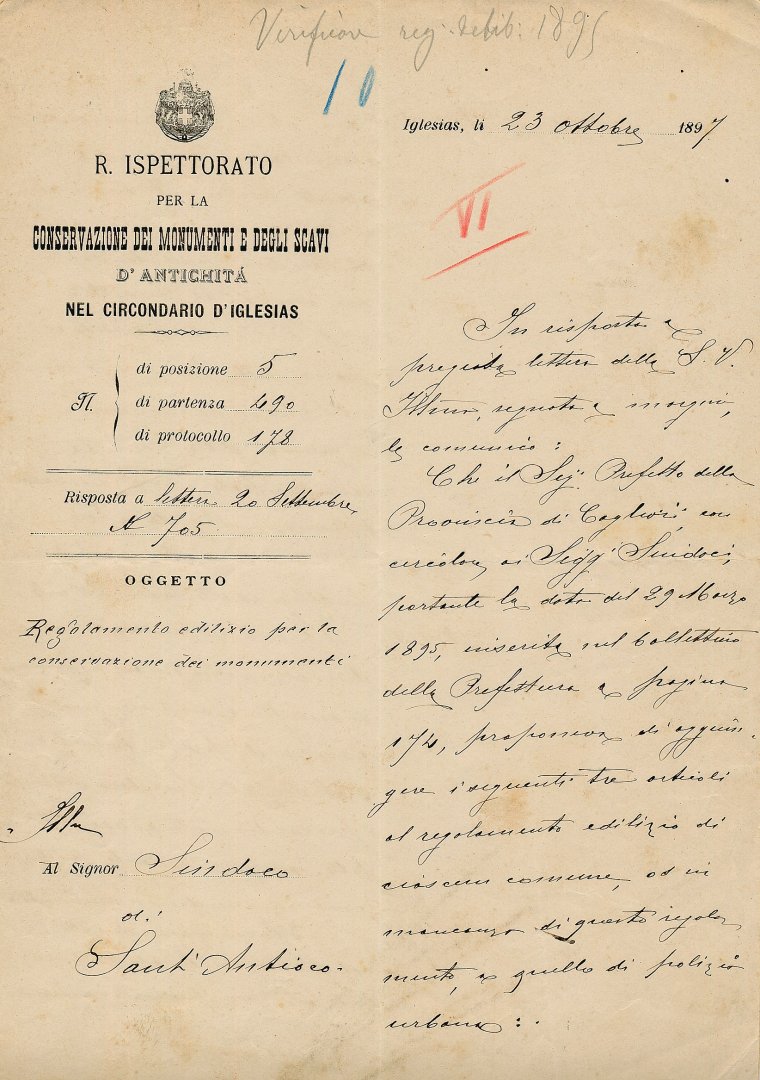 Verificare reg. delib: 1895
10
R. ISPETTORATO
PER LA
CONSERVAZIONE DEI MONUMENTI E DEGLI SCAVI
D'ANTICHITÁ
NEL CIRCONDARIO D'IGLESIAS
N.
di posizione 5
di partenza 490
di protocollo 178
Risposta a lettera 20 Settembre
N 705
OGGETTO
Regolamento edilizio per la
conservazione dei monumenti
Al Signor Sindaco
di
Sant'Antioco.
Iglesias, li 23 ottobre 1897
VI
In risposta a
pregiata lettera della S. V.
Illma, segnata a margine,
le comunico:
Che il Sig. Prefetto della
Provincia di Cagliari, con
circolare ai Sigg. Sindaci,
portante la data del 29 Marzo
1895, inserita nel bollettino
della Prefettura a pagina
174, proponeva di aggiun-
gere i seguenti tre articoli
al regolamento edilizio di
ciascun comune, od in
mancanza di questo regola
mento, a quello di polizia
urbana: